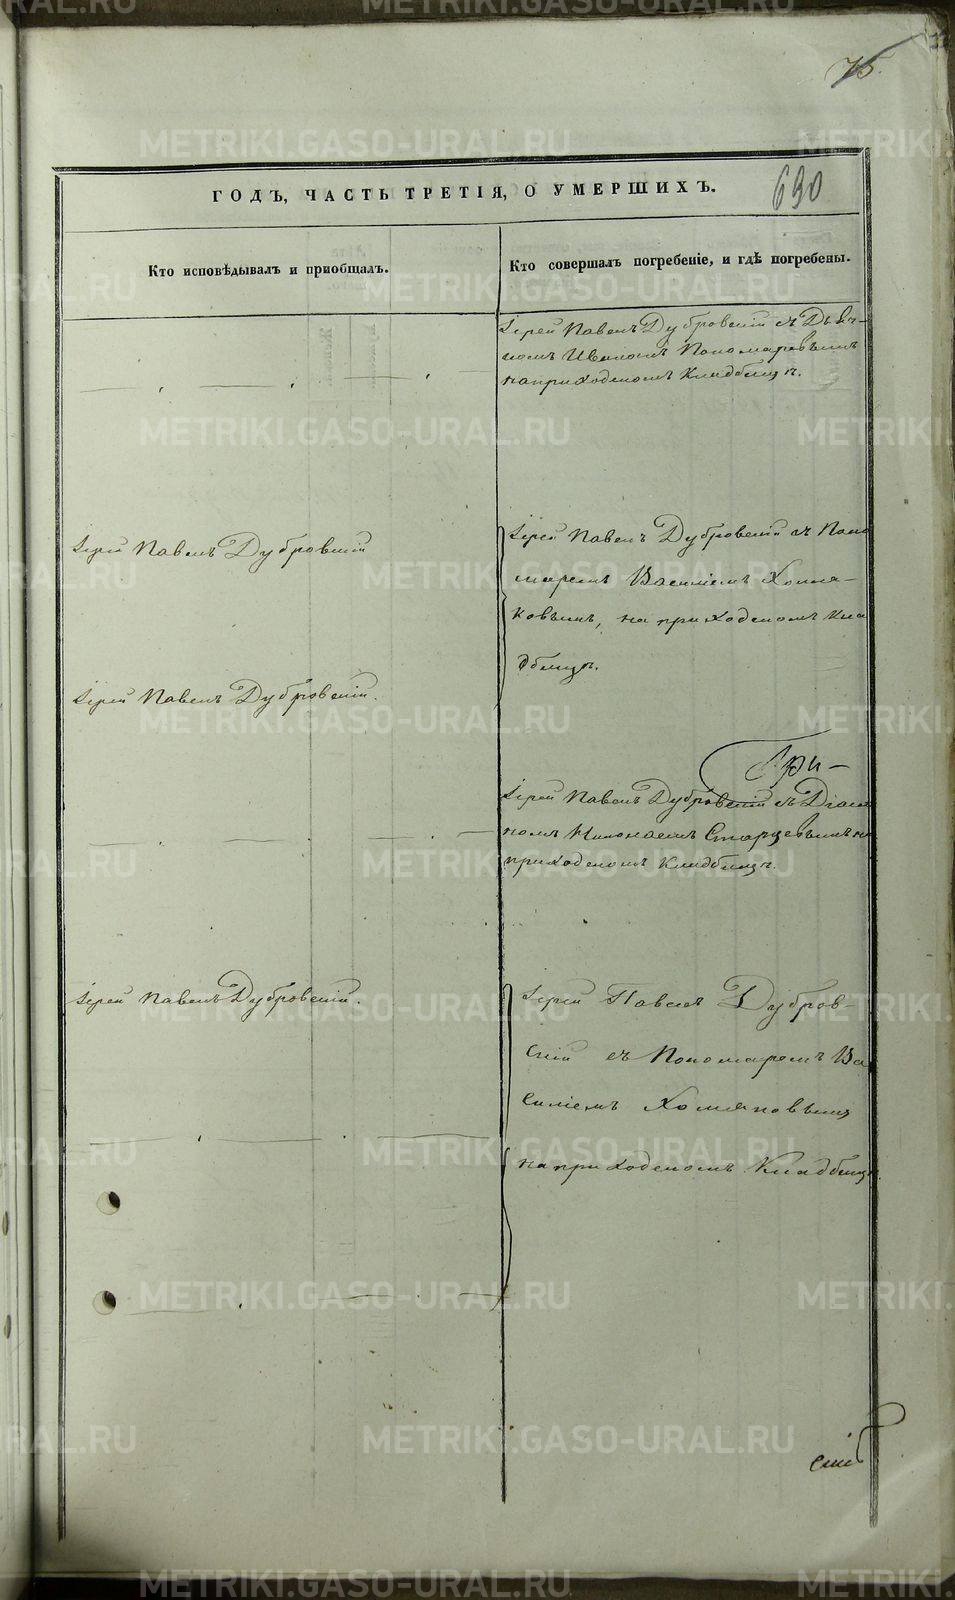 75.
ГОДЪ, ЧАСТЬ ТРЕТІЯ, О УМЕРШИХЪ.
690
Кто исповѣдывалъ и пріобщалъ.
Кто совершалъ погребеніе, и гдѣ погребены.
Іерей Павелъ Дубровскій съ Дьяч-
комъ Иваномъ Пономаревымъ
на приходскомъ Кладбищѣ.
Іерей Павелъ Дубровскій
Іерей Павелъ Дубровскій съ Поно
маремъ Василіемъ Хомя-
ковымъ, на приходскомъ Кла
дбищѣ.
Іерей Павелъ Дубровскій.
При-
Іерей Павелъ Дубровскій съ Діако
номъ Николаемъ Старцевымъ на
приходскомъ Кладбищѣ.
Іерей Павелъ Дубровскій.
Іерей Павелъ Дубров-
скій съ Пономаремъ Ва
силіемъ Хомяковымъ
на приходскомъ Кладбищѣ.
METRIKI.GASO-URAL.RU